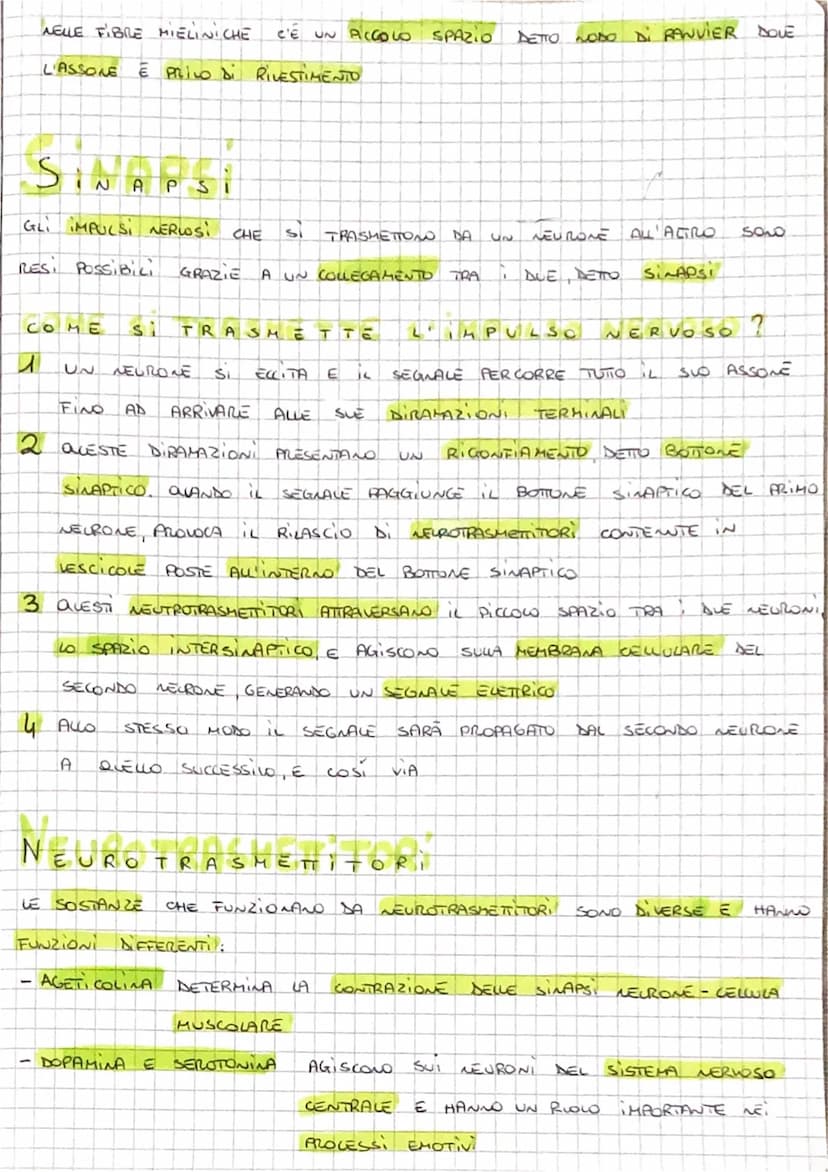 NELLE FIBRE MIELINICHE C'È UN PICCOLO SPAZIO DETTO NODO DI RANVIER DOVE
L'ASSONE È PRIVO DI RIVESTIMENTO
SINAPSI
GLI IMPULSI NERVOSI CHE SI TRASMETTONO DA UN NEURONE ALL'ALTRO SONO
RESI POSSIBILI GRAZIE A UN COLLEGAMENTO TRA I DUE, DETTO SINAPSI
COME SI TRASMETTE L'IMPULSO NERVOSO?
1 UN NEURONE SI ECCITA E IL SEGNALE PERCORRE TUTTO IL SUO ASSONE
FINO AD ARRIVARE ALLE SUE DIRAMAZIONI TERMINALI
2 QUESTE DIRAMAZIONI PRESENTANO UN RIGONFIAMENTO, DETTO BOTTONE
SINAPTICO. QUANDO IL SEGNALE RAGGIUNGE IL BOTTONE SINAPTICO DEL PRIMO
NEURONE, PROVOCA IL RILASCIO DI NEUROTRASMETTITORI CONTENUTE IN
VESCICOLE POSTE ALL'INTERNO DEL BOTTONE SINAPTICO
3 QUESTI NEUTROTRASMETTITORI ATTRAVERSANO IL PICCOLO SPAZIO TRA I DUE NEURONI,
LO SPAZIO INTERSINAPTICO, E AGISCONO SULLA MEMBRANA CELLULARE DEL
SECONDO NEURONE, GENERANDO UN SEGNALE ELETTRICO
4 ALLO STESSO MODO IL SEGNALE SARÀ PROPAGATO DAL SECONDO NEURONE
A QUELLO SUCCESSIVO, E COSÌ VIA
NEUROTRASMETTITORI
LE SOSTANZE CHE FUNZIONANO DA NEUROTRASMETTITORI SONO DIVERSE E HANNO
FUNZIONI DIFFERENTI:
- AGETICOLINA DETERMINA LA CONTRAZIONE DELLE SINAPSI NEURONE-CELLULA
MUSCOLARE
- DOPAMINA E SEROTONINA AGISCONO SUI NEURONI DEL SISTEMA NERVOSO
CENTRALE E HANNO UN RUOLO IMPORTANTE NEI
PROCESSI EMOTIVI